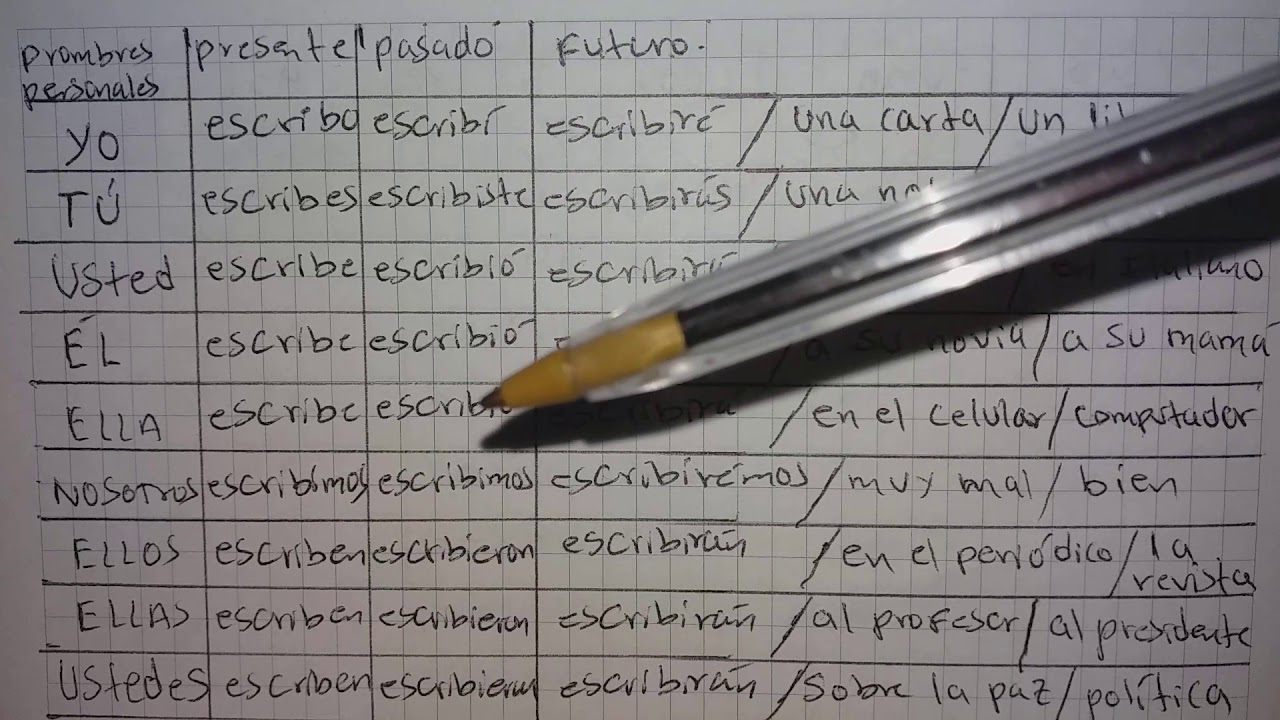 prombres presente pasado Futuro.
personales
YO escribo escribí escribiré / una carta / un
TÚ escribes escribiste escribirás / una
Usted escribe escribió
ÉL escribe escribió a su novia / a su mamá
ELLA escribe escribió escribirá / en el celular / computador
NOSOTROS escribímos escribimos escribirémos / muy mal / bien
ELLOS escriben escribieron escribirán / en el periódico / la
revista
ELLAS escriben escribieron escribirán / al profesor / al presidente
Ustedes escriben escribieron escribirán / sobre la paz / política